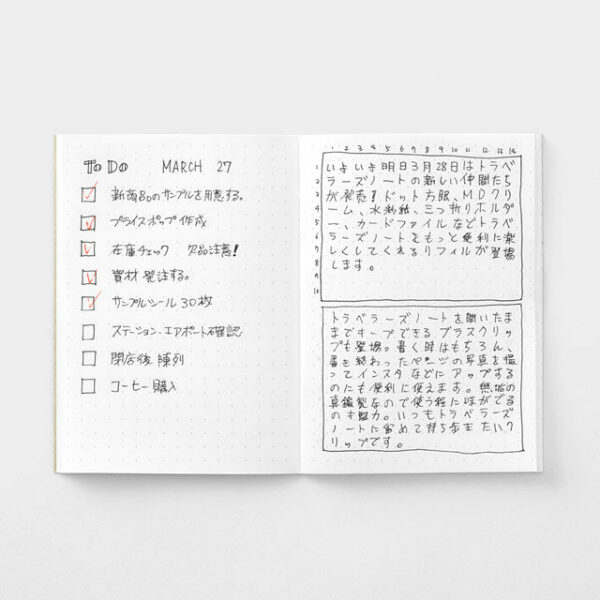 TO DO MARCH 27
新商品のサンプルを用意する。
プライスポップ作成
在庫チェック 欠品注意!
資材発注する。
サンプルシール30枚
ステーション、エアポート確認
閉店後 陳列
コーヒー購入
1 2 3 4 5 6 7 8 9 10 11 12 13 14
1 いよいよ明日3月28日はトラベ
2 ラーズノートの新しい仲間たち
3 が発売!ドット方眼、MDクリ
4 ーム、水彩紙、三つ折りホルダ
5 ー、カードファイルなどトラベ
6 ラーズノートをもっと便利に楽
7 しくしてくれるリフィルが登場
8 します。
9
10
トラベラーズノートを開いたま
まキープできるブラスクリッ
プも登場。書く時はもちろん、
書き終わったページの写真を撮
ってインスタなどにアップする
のにも便利に使えます。無垢の
真鍮製なので使う程に味がでる
のも魅力。いつもトラベラーズ
ノートに留めて持ち歩きたいク
リップです。